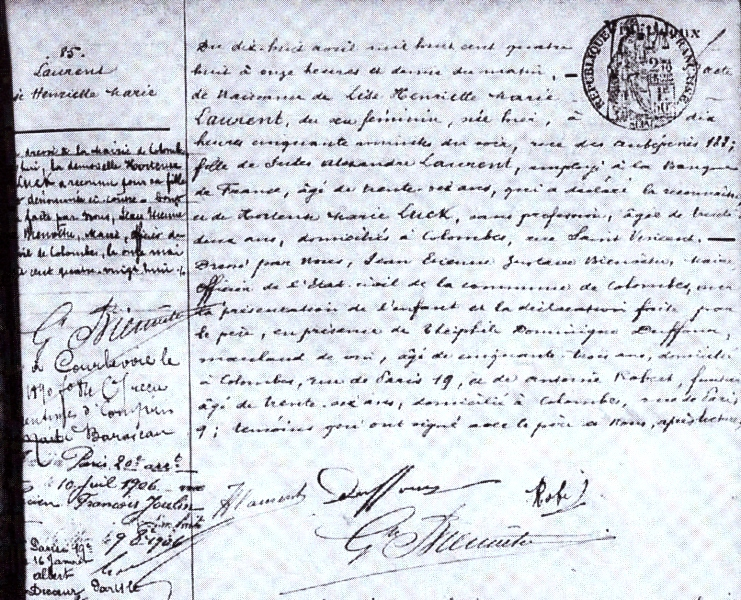 85.
Laurent
Henriette Marie
dressé à la mairie de Colombes
la demoiselle Hortense
Luck a reconnu pour sa fille
dénommée ci-contre
faite par nous, Jean Etienne
Biennâtre, Maire, officier de
de Colombes, le onze mai
cent quatre-vingt huit
G. Biennâtre
Courbevoie le
Paris 20e arrt
10 Juil 1906
François Joulin
Paris 19e
16 Janvier
Albert
RÉPUBLIQUE FRANÇAISE
Du dix-huit avril mil huit cent quatre
huit à onze heures et demie du matin, — Acte
de Naissance de Lise Henriette Marie
Laurent, du sexe féminin, née hier, à dix
heures cinquante minutes du soir, rue des 188;
fille de Jules Alexandre Laurent, employé à la Banque
de France, âgé de trente six ans, qui a déclaré la reconnaître
et de Hortense Marie Luck, sans profession, âgée de trente
deux ans, domiciliés à Colombes, rue Saint Vincent. —
Dressé par Nous, Jean Etienne Gustave Biennâtre, Maire
officier de l'Etat civil de la commune de Colombes, sur
la présentation de l'enfant et la déclaration faite par
le père, en présence de Théophile Dominique Duffour,
marchand de vin, âgé de cinquante trois ans, domicilié
à Colombes, rue de Paris 19, et de Antoine Robert,
âgé de trente six ans, domicilié à Colombes, rue de Paris
9; témoins qui ont signé avec le père et Nous, après lecture.
A Laurent Duffour Robert
G. Biennâtre